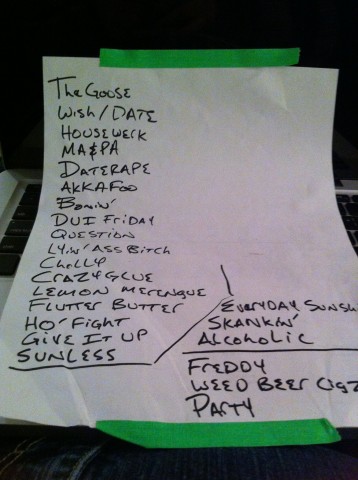 The Goose
Wish/DATE
HOUSEWERK
MA&PA
DATERAPE
AKKAFOO
Bonin'
DUI FRIDAY
QUESTION
Lyin' Ass Bitch
Chelly
CRAZY GLUE
LEMON MERENGUE
FLUTTER BUTTER
HO' FIGHT
GIVE IT UP
SUNLESS
EVERYDAY SUNSH
SKANKIN'
ALCOHOLIC
FREDDY
WEED BEER CIGZ
PARTY